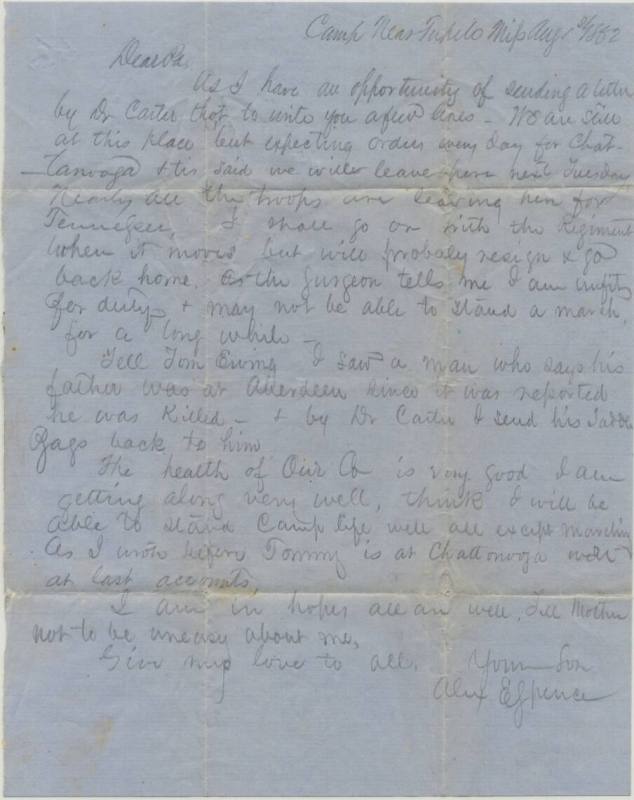 Camp Near Tupelo Miss Aug 1862
Dear Pa.
As I have an opportunity of sending a letter
by Dr Carter thot to write you a few lines - We are still
at this place but expecting orders every day for Chat-
tanooga & tis said we will leave here next Tuesday
Nearly all the troops are leaving for
Tennessee, I shall go on with the Regiment
when it moves but will probaly resign & go
back home. As the Surgeon tells me I am unfit
for duty & may not be able to stand a march,
for a long while -
Tell Tom Ewing I saw a man who says his
father was at Aberdeen since it was reported
he was Killed - & by Dr Carter I send his Saddle
Bags back to him
The health of Our Co is very good I am
getting along very well, think I will be
able to stand Camp life well all except marching
As I wrote before Tommy is at Chattonooga well
at last accounts
I am in hopes all are well. Tell Mother
not to be uneasy about me,
Give my love to all. Your Son
Alex E Spence